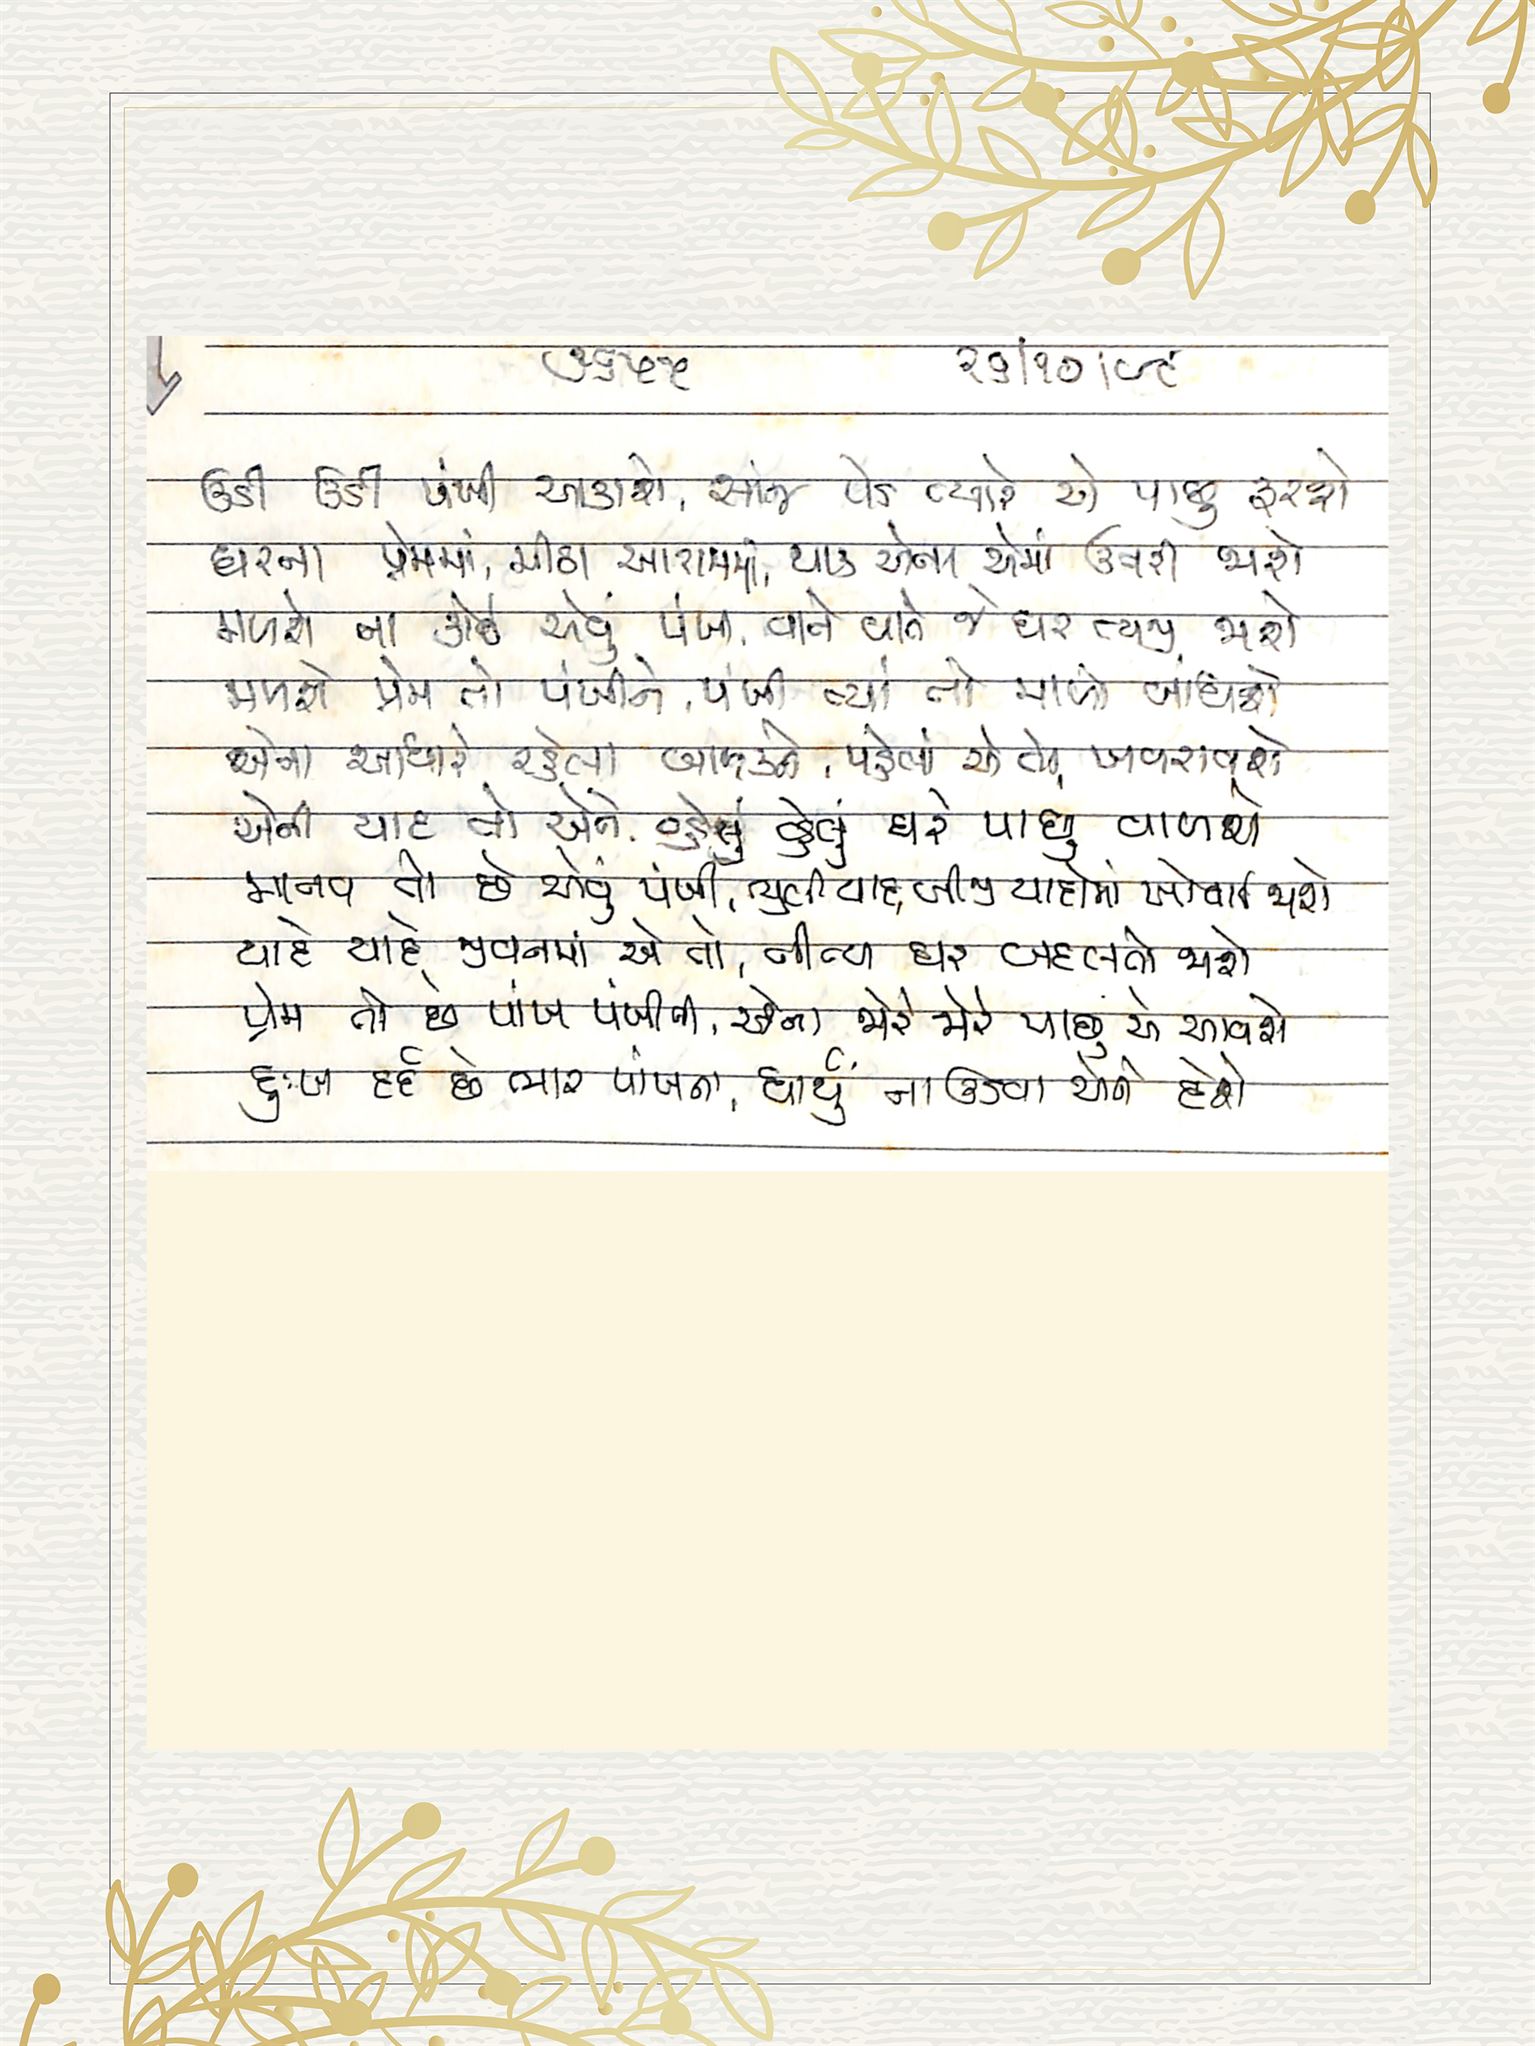 ૨૬/૧૦/૮૯
ઉડી ઉડી પંખી આકાશે, સાંજ પડે ત્યારે એ પાછું ફરશે
ઘરના પ્રેમમાં, મીઠા આરામમાં, થાક એના એમાં ઉતરી જાશે
મળશે ના કોઈ એવું પંખી, વાતે વાતે જે ઘર ત્યજી જાશે
મળશે પ્રેમ તો પંખીને, પંખી ત્યાં તો માળો બાંધશે
એના આધારે રહેલા બાળકને, પહેલાં એ તો ખવરાવશે
એની યાદ તો એને, વહેલું વહેલું ઘરે પાછું વાળશે
માનવ તો છે એવું પંખી, ભુલી યાદ, બીજી યાદોમાં ખોવાઈ જાશે
યાદે યાદે જીવનમાં એ તો, નીત્ય ઘર બદલતો જાશે
પ્રેમ તો છે પાંખ પંખીની, એના જોરે જોરે પાછું એ આવશે
દુઃખ દર્દ છે ભાર પાંખના, ધાર્યું ના ઉડવા એને દેશે